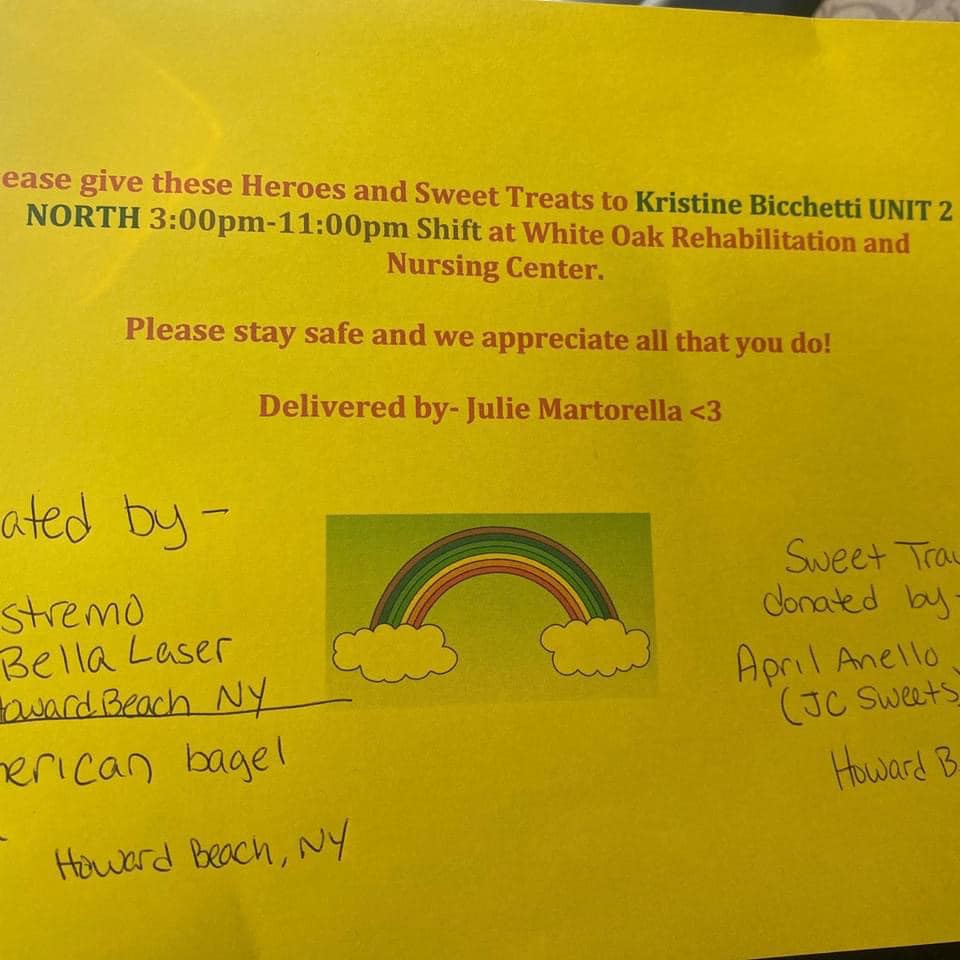 ease give these Heroes and Sweet Treats to Kristine Bicchetti UNIT 2
NORTH 3:00pm-11:00pm Shift at White Oak Rehabilitation and
Nursing Center.
Please stay safe and we appreciate all that you do!
Delivered by- Julie Martorella <3
ated by-
stremo
Bella Laser
Howard Beach NY
merican bagel
Howard Beach, NY
Sweet Tra
donated by-
April Anello
(JC Sweets)
Howard B